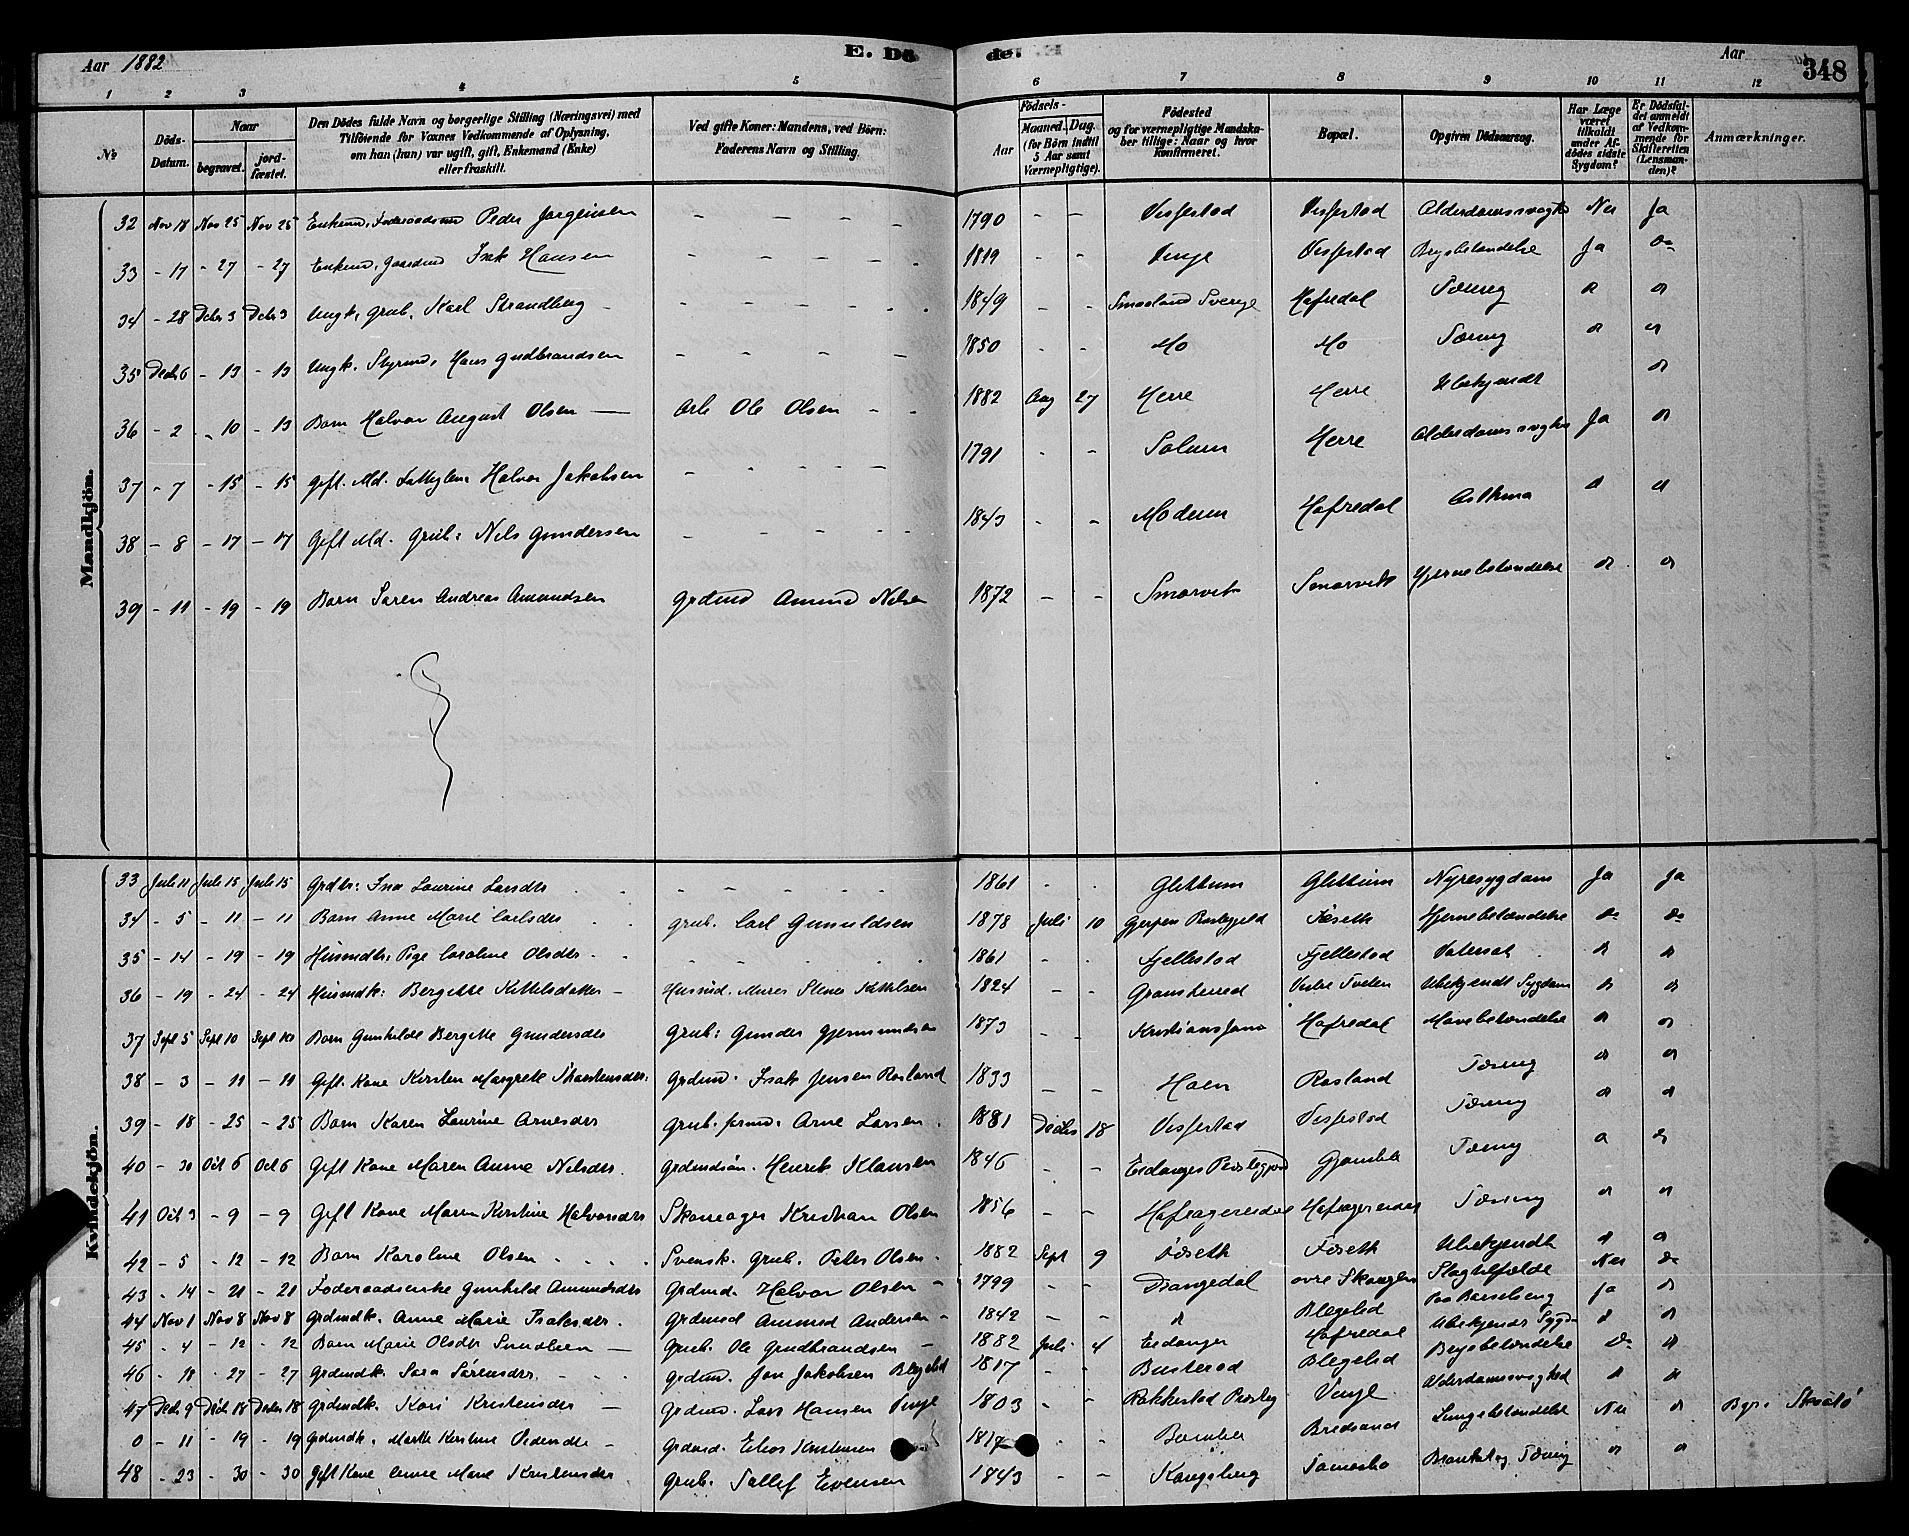 Aar 1882 E. Dö de. Aar 348
1 2 3 4 5 6 7 8 9 10 11 12
No Döds-Datum. Naar begravet. jordfæstet. Den Dödes fulde Navn og borgerlige Stilling (Næringsvei) med Tilföiende for Voxnes Vedkommende af Oplysning, om han (hun) var ugift, gift, Enkemand (Enke) eller fraskilt. Ved gifte Koner: Mandens, ved Börn: Faderens Navn og Stilling. Födsels- Aar Maaned. Dag. (for Börn indtil 5 Aar samt Værnepligtige). Födested og for værnepligtige Mandskaber tillige: Naar og hvor konfirmeret. Bopæl. Opgiven Dödsaarsag. Har Læge været tilkaldt under Afdödes sidste Sygdom? Er Dödsfaldet anmeldt af Vedkommende for Skifteretten (Lensmanden)? Anmærkninger.
Mandkjön.
32 Nov 18 Nov 25 Nov 25 Enkemd. Föderaadsmd Peder Jörgensen - - - - - 1790 - - Visfestad Visfestad Alderdomssvaghed Nei Ja
33 - 17 - 27 - 27 Enkemd. Gaardmd Isak Hansen - - - - - 1819 - - Vinje Visfestad Brystbetændelse Ja Do
34 - 28 Decbr 3 Decbr 3 Ungk. Grub. Karl Strandberg - - - - - 1849 - - Smaaland Sverige Hafredal Tæring
35 Decbr 6 - 13 - 13 Ungk. Styrmd. Hans Gudbrandsen - - - - 1850 - - Mo Mo Tæring
36 - 2 - 10 - 13 Barn Halvor August Olsen - Arb Ole Olsen - - 1882 Aug 27 Herre Herre Ubekjendt
37 - 7 - 15 - 15 Gift. Md. Fattiglem Halvor Jakobsen - - - - - 1791 - - Solum Herre Alderdomssvaghed Ja
38 - 8 - 17 - 17 Gift Md. Grub. Nils Gundersen - - - - - 1843 - - Modum Hafredal Asthma
39 - 11 - 19 - 19 Barn Sören Andreas Amundsen Grdmd Amund Nilsen 1872 - - Smörvik Smörvik Hjernebetændelse
Kvindekjön.
33 Juli 11 Juli 15 Juli 15 Grdtr. Ina Laurine Larsdtr - - - - 1861 - - Glittum Glittum Nyresygdom Ja Ja
34 - 5 - 11 - 11 Barn Anne Marie Carlsdtr Grub. Carl Gunuldsen 1878 Juli 10 Gjerpen Præstegjeld Föseth Hjernebetændelse Do Do
35 - 14 - 19 - 19 Husmdtr. Pige Caroline Olsdtr - - - - 1861 - - Fjellestad Fjellestad Vatersot
36 - 19 - 24 - 24 Husmdk. Bergitte Kittelsdatter - Husmd. Murer Stener Kittelsen 1824 - - Gransherred Vestre Tveten Ubekjendt Sygdom
37 Sept 5 Sept 10 Sept 10 Barn Gunhilde Bergitte Gundersdtr Grub. Gunder Gjermundsen 1873 - - Kristiansfana Hafredal Mavebetændelse
38 - 3 - 11 - 11 Gift. Kone Kirsten Margrete Thorstensdtr. Grdmd. Isak Jensen Rosland 1833 - - Hoen Rosland Tæring
39 - 18 - 25 - 25 Barn Karen Laurine Arnesdtr Grub. formd. Arne Larsen 1881 Decbr 18 Visfestad Visfestad Tæring
40 - 30 Oct 6 Oct 6 Gift Kone Maren Anne Nilsdtr. Grdmdsön. Henrik Klausen 1846 - - Eidanger Præstegjeld Grömle Tæring
41 Oct 3 - 9 - 9 Gift Kone Maren Kirstine Halvorsdtr Skomager Kristian Olsen 1856 - - Hafragereidet Hafragereidet Tæring
42 - 5 - 12 - 12 Barn Karoline Olsen Svensk. Grub. Peter Olsen 1882 Sept 9 Föseth Föseth Ubekjendt
43 - 14 - 21 - 21 Föderaadsenke Gunhild Amundsdtr Grdmd. Halvor Olsen - 1799 - - Drangedal övre Skougen Slagtilfælde Nei Do
44 Nov 1 Nov 8 Nov 8 Grdmdk. Anne Marie Isaksdtr. Grdmd Ammud Andersen - 1842 - - Blegelid Paa Barselseng Ja
45 - 4 - 12 - 12 Barn Marie Olsdtr Sundbsen - Grub. Ole Grudbrandsen - 1882 Juli 4 Eidanger Hafredal Ubekjendt Sygd-
46 - 18 - 27 - 27 Grdmdk. Sara Sörensdtr - - - Grdmd. Jon Jakobsen Blegelid 1817 - - Busterød Blegelid Brystbetændelse Do
47 Decbr 9 Decbr 18 Decbr 18 Grdmdk. Kari Kristensdtr - Grdmd. Lars Hansen Vinje 1803 - - Rakkestad Præsteg Vinje Alderdomssvaghed
0 - 11 - 19 - 19 Grdmdk. Marthe Kirstine Pedersdtr - Grdmd. Elias Kristensen 1817 - - Bamble Bredsand Lungebetændelse Nei Bgr. i Skaatö
48 - 23 - 30 - 30 Gift Kone Anne Marie Kristensdtr Grub. Tallef Evensen 1843 - - Kongsberg Bronkit og Tæring